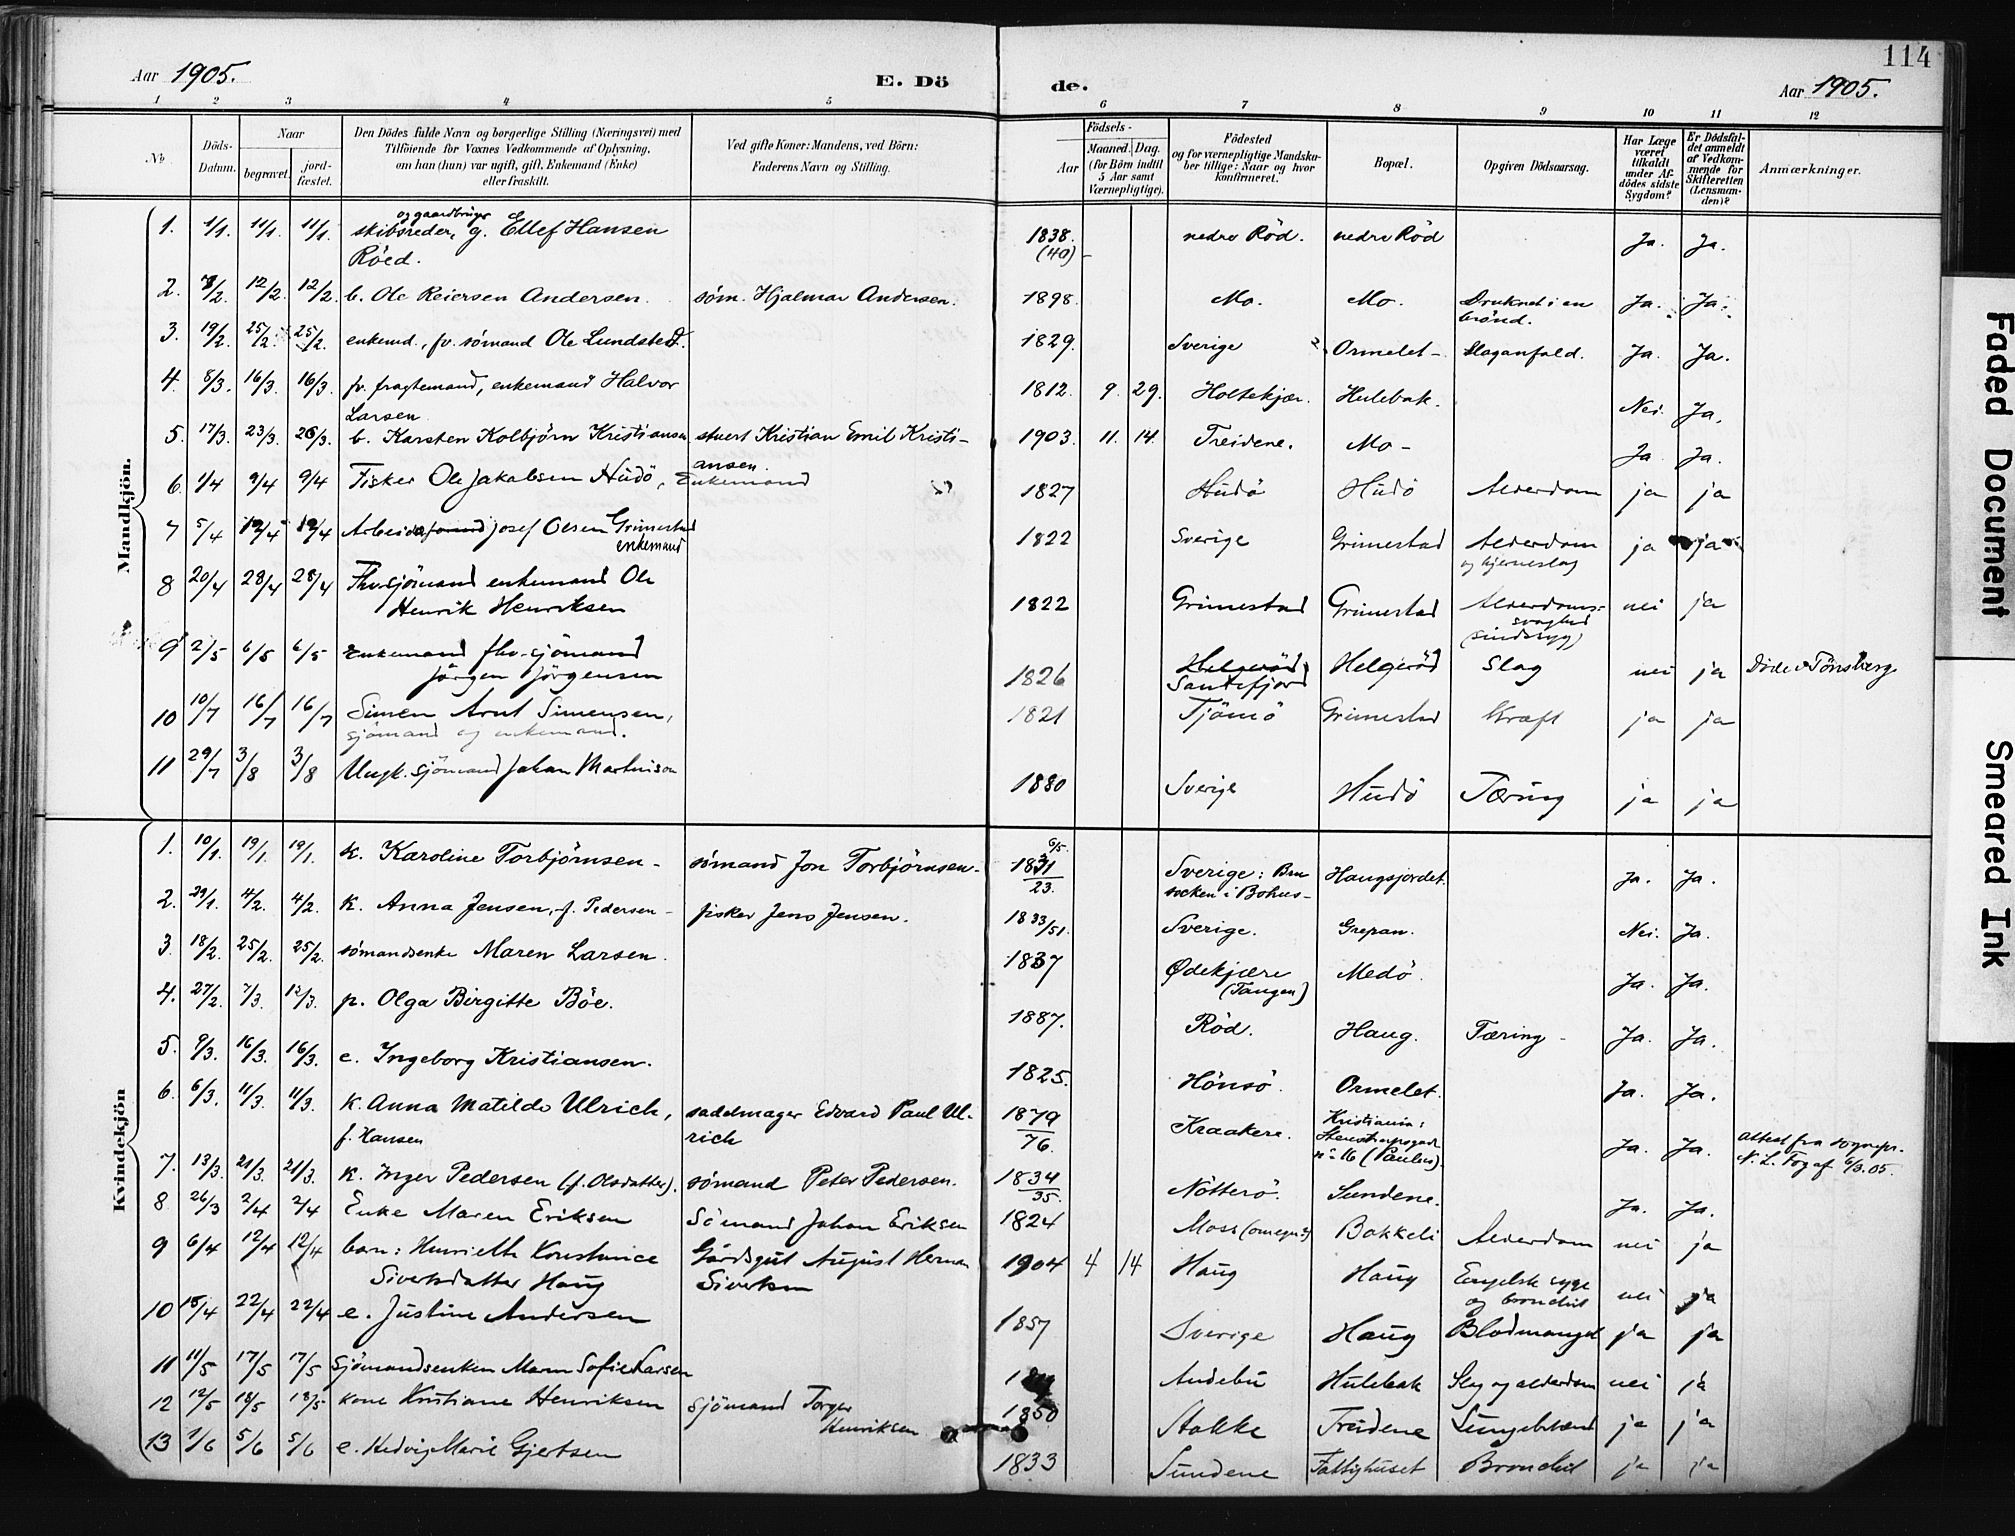 114
Aar 1905.
E. Dö
de.
Aar 1905.
1 2 3 4 5 6 7 8 9 10 11 12
No.
Döds-Datum.
Naar
begravet.
jordfæstet.
Den Dödes fulde Navn og borgerlige Stilling (Næringsvei) med
Tilföiende for Voxnes Vedkommende af Oplysning,
om han (hun) var ugift, gift, Enkemand (Enke)
eller fraskilt.
Ved gifte Koner: Mandens, ved Börn:
Faderens Navn og Stilling.
Födsels-
Aar
Maaned. Dag.
(for Börn indtil
5 Aar samt
Værnepligtige).
Födested
og for værnepligtige Mandska-
ber tillige: Naar og hvor
konfirmeret.
Bopæl.
Opgiven Dödsaarsag.
Har Læge
været
tilkaldt
under Af-
dödes sidste
Sygdom?
Er Dödsfal-
det anmeldt
af Vedkom-
mende for
Skifteretten
(Lensman-
den)?
Anmærkninger.
Mandkjön.
1. 4/1. 11/1. 11/1. skibsreder, og gaardbruger g. Ellef Hansen 1838. nedre Rød. nedre Rød Ja. Ja.
Röed. (40)
2. 7/2. 12/2. 12/2. b. Ole Reiersen Andersen. søm. Hjalmar Andersen. 1898. Mo. Mo. Druknet i en Ja. Ja.
brönd.
3. 19/2. 25/2. 25/2. enkemd., fv. sømand Ole Lundsted. 1829. Sverige Ormelet- Slaganfald. Ja. Ja.
4. 8/3. 16/3. 16/3. fv. fragtemand, enkemand Halvor 1812. 9. 29. Holtekjær. Hulebak. Nei. Ja.
Larsen.
5. 17/3. 23/3. 23/3. b. Karsten Kolbjörn Kristiansen stuert Kristian Emil Kristi- 1903. 11. 14. Treidene. Mo- Ja. Ja.
ansen.
6. 1/4 9/4 9/4 Fisker Ole Jakobsen Hudö, Enkemand 1827 Hudö Hudö Alderdom ja ja
7 5/4 12/4 12/4 Josef Olsen Grimestad 1822 Sverige Grimestad Alderdom ja ja
enkemand og hjerneslag
8 20/4 28/4 28/4 Fhv. sjömand enkemand Ole
Henrik Henriksen 1822 Grimestad Grimestad Alderdoms- nei ja
svaghed
(sindssyg)
9 2/5 6/5 6/5 Enkemand fhv. sjömand
Jörgen Jörgensen 1826 Helgeröd Helgeröd Slag nei ja Döde i Tönsberg
Sandefjord
10 10/7 16/7 16/7 Simen Arnt Simensen, 1821 Tjömö Grimestad Kræft ja ja
sjömand og enkemand.
11 29/7 3/8 3/8 Ungk. sjömand Johan Martinison 1880 Sverige Hudö Tæring ja ja
Kvindekjön
1. 10/1. 19/1. 19/1. k. Karoline Torbjörnsen- sömand Jon Torbjörnsen- 6/5. 1831 Sverige: Bro Haugsjordet. Ja. Ja.
23. socken i Bohus-
2. 29/1. 4/2. 4/2. k. Anna Jensen, f. Pedersen- fisker Jens Jensen. 1833/51. Sverige. Grepan. Nei. Ja.
3. 18/2. 25/2. 25/2. sömandsenke Maren Larsen. 1837 Ødekjære Medö. Ja. Ja.
(Tangen)
4. 27/2. 7/3. 12/3. p. Olga Birgitte Böe. 1887. Röd. Haug. Tæring- Ja. Ja.
5. 9/3. 16/3. 16/3. e. Ingeborg Kristiansen. 1825. Hönsö. Ormelet. Ja. Ja.
6. 6/3. 11/3. 11/3. k. Anna Matilde Ulrich, sadelmager Edvard Paul Ul- 1879 Kraakere. Kristiania: Ja. Ja. attest fra sognepr.
f. Hansen rich 76. Stenstrupsgade N. L. Fog af 6/3.05.
no 16 (Paulus).
7. 13/3. 21/3. 21/3. k. Inger Pedersen (f. Olsdatter). sømand Peter Pedersen. 1834 Nötterö. Sundene. Ja. Ja.
35.
8. 26/3 2/4 2/4 Enke Maren Eriksen Sömand Johan Eriksen 1824 Moss (omegn?) Bakkeli Alderdom nei ja
9 6/4 12/4 12/4 barn: Henriette Konstance Gårdsgut August Herman 1904 4 14 Haug Haug Engelsk syge nei ja
Sivertsdatter Haug Sivertsen og bronchit
10 15/4 22/4 22/4 e. Justine Andersen 1857 Sverige Haug Blodmangel ja ja
11 11/5 17/5 17/5 Sjömandsenken Maren Sofie Larsen Andebu Hulebak Slag og alderdom nei ja
12 12/5 18/5 18/5 kone Kristiane Henriksen Sjömand Torger 1850 Stokke Treidene Lungebetænd ja ja
Henriksen
13 1/6 5/6 5/6 e. Hedvig Marie Gjertsen 1833 Sundene Fattighuset Bronchit ja ja
Faded Document
Smeared Ink